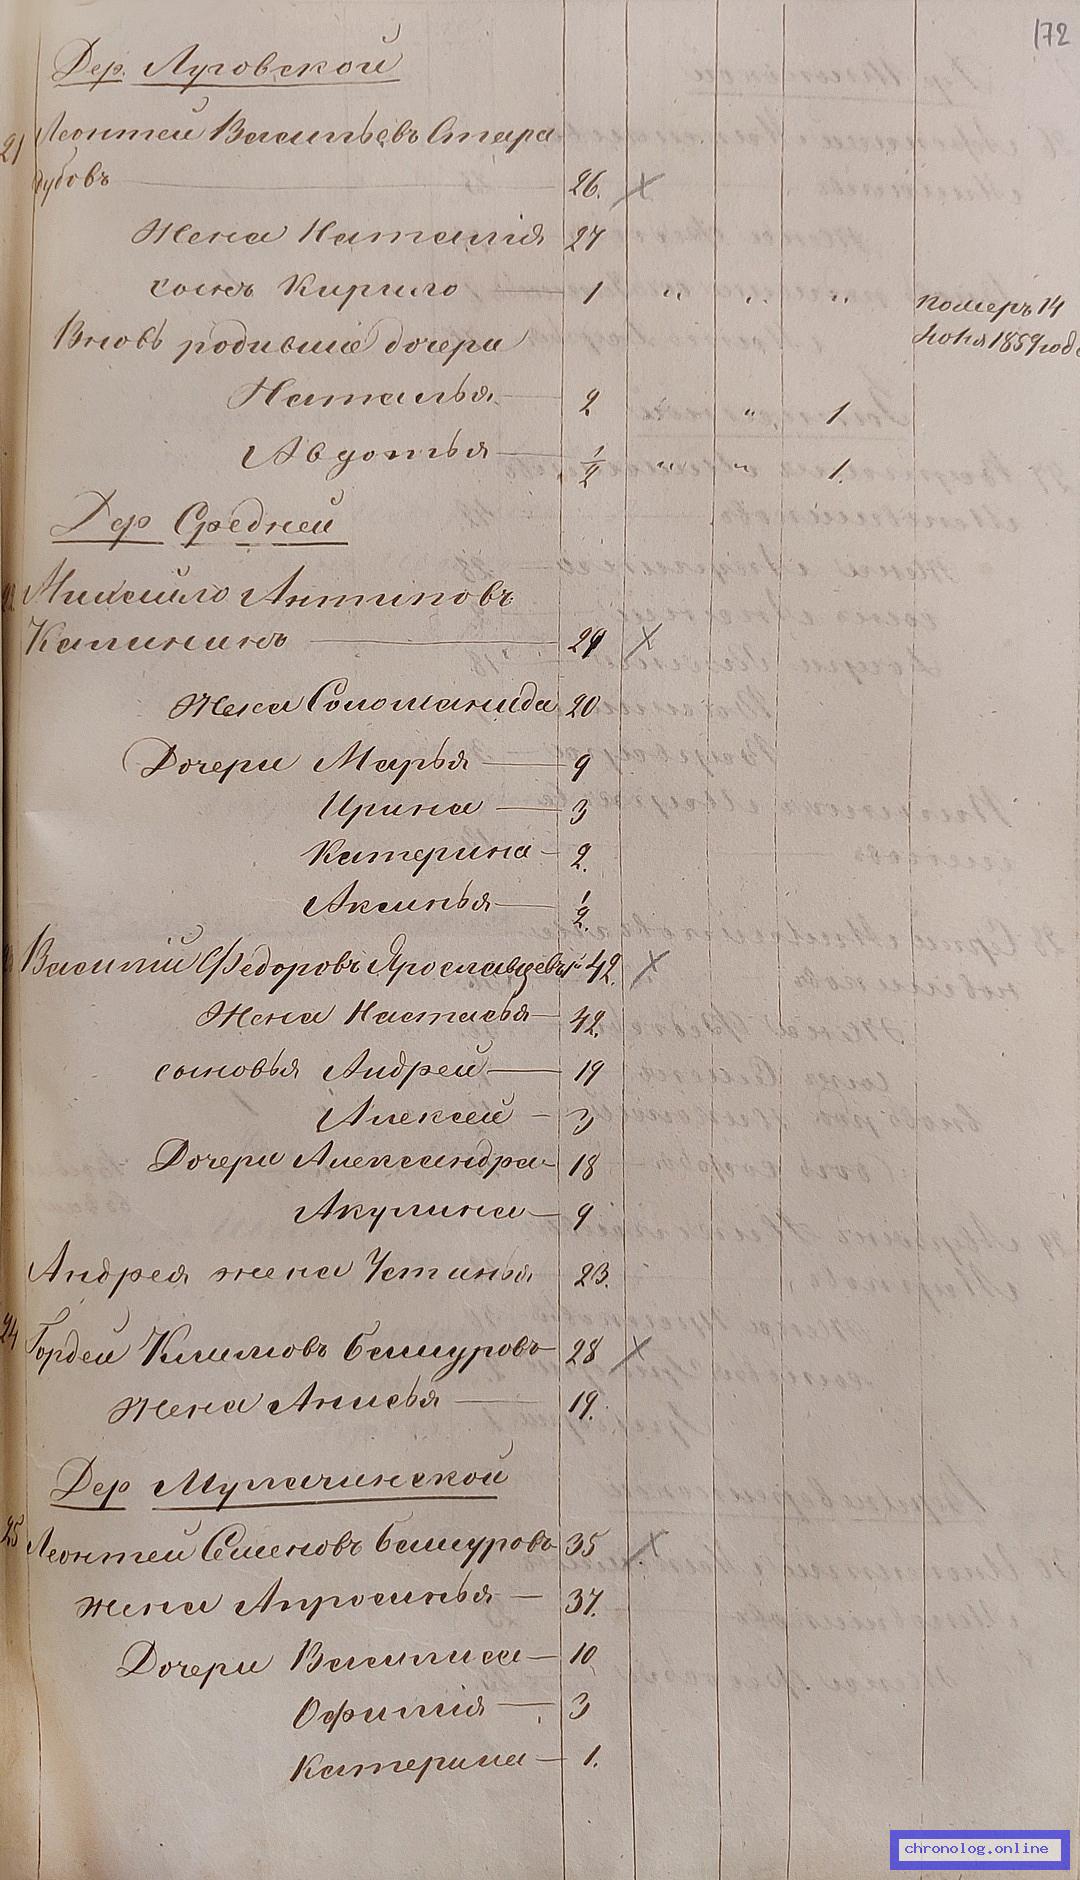 172
Дер. Луговской
21 Леонтей Васильевъ Стара
дубовъ 26.
Жена Наталія 27
сынъ Кирило 1 " " " померъ 14
Июня 1859 года
Вновь родившіе дочери
Наталья 2 " " 1.
Авдотья 1/2 " " 1.
Дер Средней
Михайло Антиповъ
Калининъ 29
Жена Соломанида 20
Дочери Марья 9
Ирина 3
Катерина 2.
Аксинья 1/2.
Василій Федоровъ Ярославцевъ 42.
Жена Настасья 42.
сыновья Андрей 19
Алексей 3
Дочери Александра 18
Акулина 9
Андрея жена Устинья 23.
24 Гордей Климовъ Башуровъ 28
Жена Анисья 19.
Дер Мулачинской
25 Леонтей Семеновъ Башуровъ 35
жена Апросинья 37.
Дочери Василиса 10
Офимія 3
Катерина 1.
chronolog.online